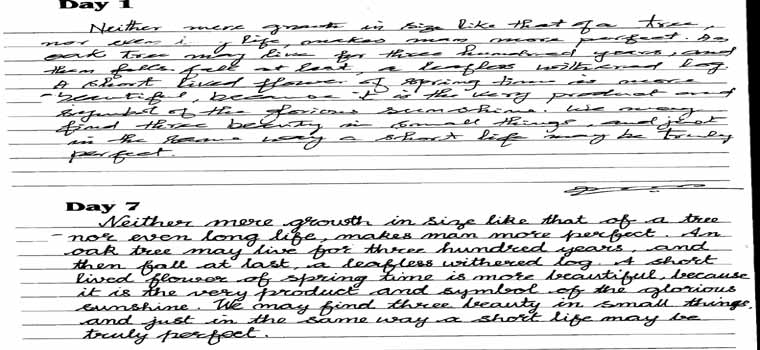 Day 1
Neither mere growth in size like that of a tree,
nor even life, makes man more perfect. An
oak tree may live for three hundred years, and
then fall at last, a leafless withered log
A short lived flower of spring time is more
beautiful, because it is the very product and
symbol of the glorious sunshine. We may
find three beauty in small things, and just
in the same way a short life may be truly
perfect.
Day 7
Neither mere growth in size like that of a tree
nor even long life, makes man more perfect. An
oak tree may live for three hundred years, and
then fall at last, a leafless withered log. A short
lived flower of spring time is more beautiful, because
it is the very product and symbol of the glorious
sunshine. We may find three beauty in small things,
and just in the same way a short life may be
truly perfect.